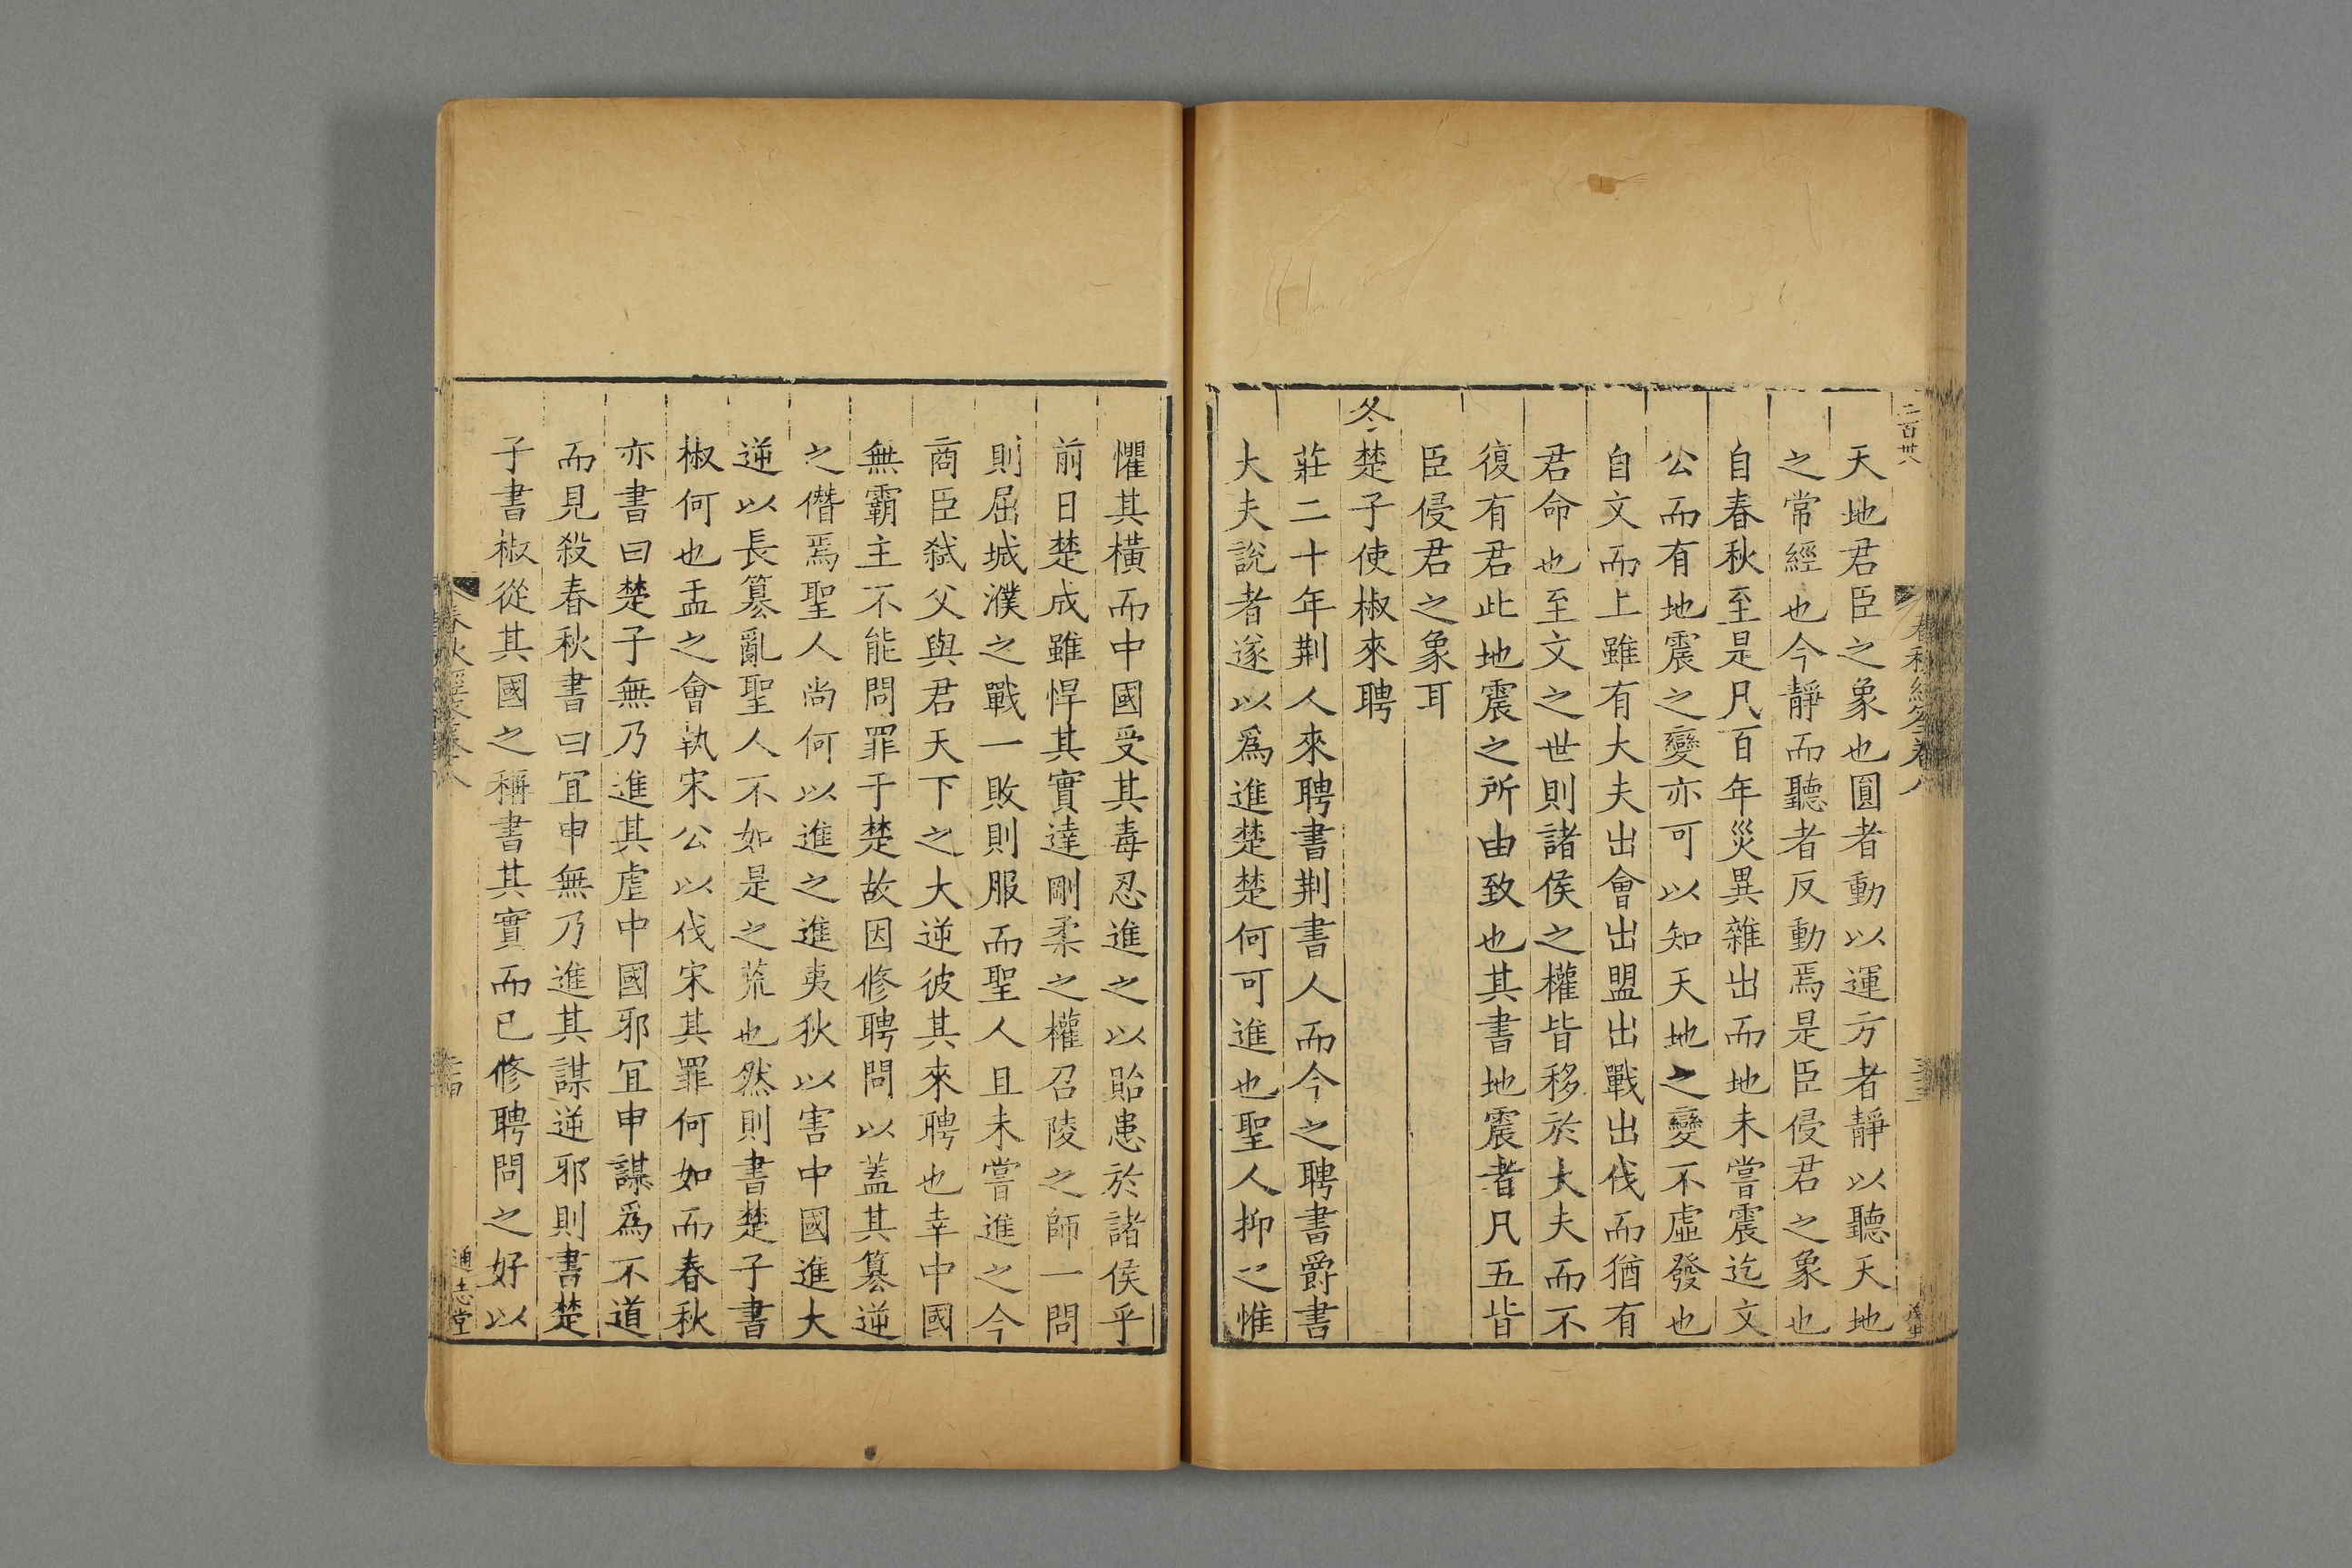 二百卅八
春秋經筌卷八
天地君臣之象也圓者動以運方者靜以聽天地
之常經也今靜而聽者反動焉是臣侵君之象也
自春秋至是凡百年災異雜出而地未嘗震迄文
公而有地震之變亦可以知天地之變不虛發也
自文而上雖有大夫出會出盟出戰出伐而猶有
君命也至文之世則諸侯之權皆移於大夫而不
復有君此地震之所由致也其書地震者凡五皆
臣侵君之象耳
冬楚子使椒來聘
莊二十年荆人來聘書荆書人而今之聘書爵書
大夫說者遂以爲進楚楚何可進也聖人抑之惟
懼其橫而中國受其毒忍進之以貽患於諸侯乎
前日楚成雖悍其實達剛柔之權召陵之師一問
則屈城濮之戰一敗則服而聖人且未嘗進之今
商臣弑父與君天下之大逆彼其來聘也幸中國
無霸主不能問罪于楚故因修聘問以蓋其篡逆
之僭焉聖人尚何以進之進夷狄以害中國進大
逆以長篡亂聖人不如是之荒也然則書楚子書
椒何也盂之會執宋公以伐宋其罪何如而春秋
亦書曰楚子無乃進其虐中國邪宜申謀爲不道
而見殺春秋書曰宜申無乃進其謀逆邪則書楚
子書椒從其國之稱書其實而已修聘問之好以
春秋經筌卷八
通志堂